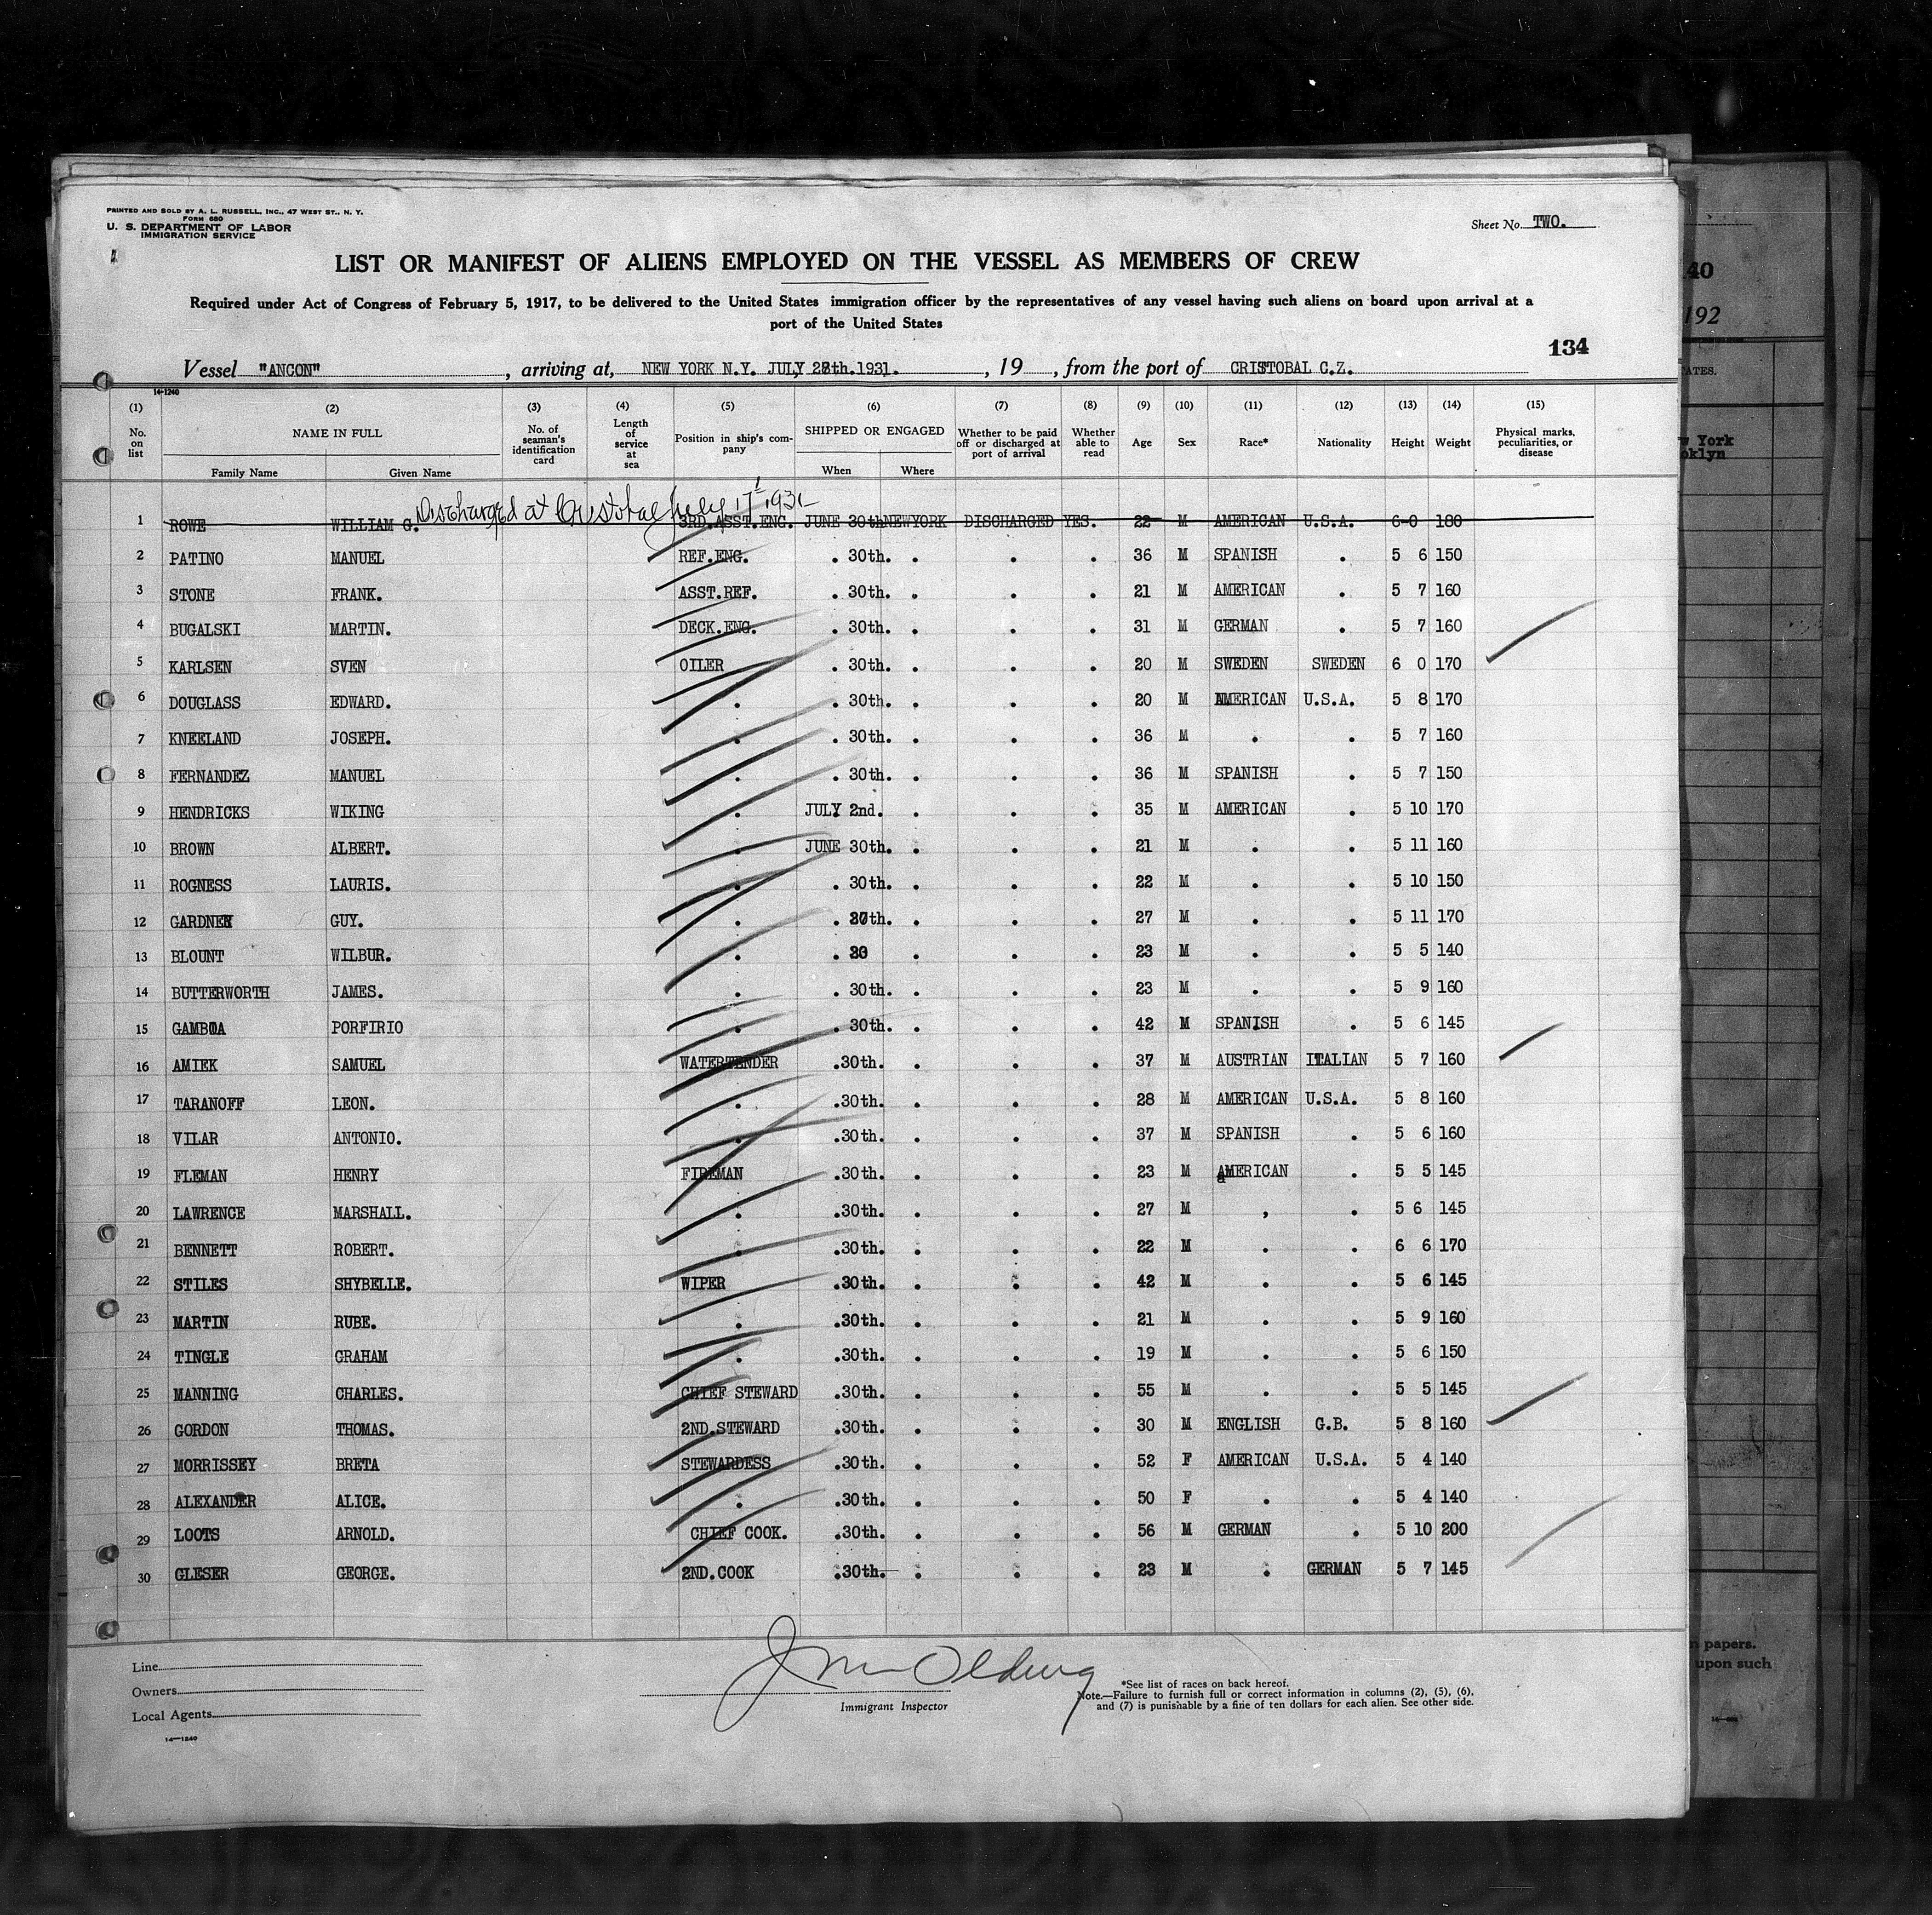 PRINTED AND SOLD BY A. L. RUSSELL, INC., 47 WEST ST., N. Y.
FORM 680
U. S. DEPARTMENT OF LABOR
IMMIGRATION SERVICE
Sheet No. TWO.
LIST OR MANIFEST OF ALIENS EMPLOYED ON THE VESSEL AS MEMBERS OF CREW
Required under Act of Congress of February 5, 1917, to be delivered to the United States immigration officer by the representatives of any vessel having such aliens on board upon arrival at a
port of the United States
134
Vessel "ANCON", arriving at, NEW YORK N.Y. JULY 28th.1931., 19 , from the port of CRISTOBAL C.Z.
14-1240
(1) (2) (3) (4) (5) (6) (7) (8) (9) (10) (11) (12) (13) (14) (15)
No. on list NAME IN FULL Family Name Given Name No. of seaman's identification card Length of service at sea Position in ship's company SHIPPED OR ENGAGED When Where Whether to be paid off or discharged at port of arrival Whether able to read Age Sex Race* Nationality Height Weight Physical marks, peculiarities, or disease
Discharged at Cristobal July 17 1931
1 ROWE WILLIAM G. 3RD.ASST.ENG. JUNE 30th NEWYORK DISCHARGED YES. 22 M AMERICAN U.S.A. 6-0 180
2 PATINO MANUEL REF.ENG. . 30th. . . . 36 M SPANISH . 5 6 150
3 STONE FRANK. ASST.REF. . 30th. . . . 21 M AMERICAN . 5 7 160
4 BUGALSKI MARTIN. DECK.ENG. . 30th. . . . 31 M GERMAN . 5 7 160
5 KARLSEN SVEN OILER . 30th. . . . 20 M SWEDEN SWEDEN 6 0 170
6 DOUGLASS EDWARD. . . 30th. . . . 20 M AMERICAN U.S.A. 5 8 170
7 KNEELAND JOSEPH. . . 30th. . . . 36 M . . 5 7 160
8 FERNANDEZ MANUEL . . 30th. . . . 36 M SPANISH . 5 7 150
9 HENDRICKS WIKING . JULY 2nd. . . . 35 M AMERICAN . 5 10 170
10 BROWN ALBERT. . JUNE 30th. . . . 21 M . . 5 11 160
11 ROGNESS LAURIS. . . 30th. . . . 22 M . . 5 10 150
12 GARDNER GUY. . . . . . 27 M . . 5 11 170
13 BLOUNT WILBUR. . . 30 . . . 23 M . . 5 5 140
14 BUTTERWORTH JAMES. . . 30th. . . . 23 M . . 5 9 160
15 GAMBOA PORFIRIO . . 30th. . . . 42 M SPANISH . 5 6 145
16 AMIEK SAMUEL WATERTENDER .30th. . . . 37 M AUSTRIAN ITALIAN 5 7 160
17 TARANOFF LEON. . .30th. . . . 28 M AMERICAN U.S.A. 5 8 160
18 VILAR ANTONIO. . .30th. . . . 37 M SPANISH . 5 6 160
19 FLEMAN HENRY FIREMAN .30th. . . . 23 M AMERICAN . 5 5 145
20 LAWRENCE MARSHALL. . .30th. . . . 27 M , . 5 6 145
21 BENNETT ROBERT. . .30th. . . . 22 M . . 6 6 170
22 STILES SHYBELLE. WIPER .30th. . . . 42 M . . 5 6 145
23 MARTIN RUBE. . .30th. . . . 21 M . . 5 9 160
24 TINGLE GRAHAM . .30th. . . . 19 M . . 5 6 150
25 MANNING CHARLES. CHIEF STEWARD .30th. . . . 55 M . . 5 5 145
26 GORDON THOMAS. 2ND.STEWARD .30th. . . . 30 M ENGLISH G.B. 5 8 160
27 MORRISSEY BRETA STEWARDESS .30th. . . . 52 F AMERICAN U.S.A. 5 4 140
28 ALEXANDER ALICE. . .30th. . . . 50 F . . 5 4 140
29 LOOTS ARNOLD. CHIEF COOK. .30th. . . . 56 M GERMAN . 5 10 200
30 GLESER GEORGE. 2ND.COOK .30th. . . . 23 M . GERMAN 5 7 145
Line
Owners
Local Agents
14—1240
Immigrant Inspector
*See list of races on back hereof.
Note.—Failure to furnish full or correct information in columns (2), (5), (6),
and (7) is punishable by a fine of ten dollars for each alien. See other side.
40
192
ATES.
York
oklyn
papers.
upon such